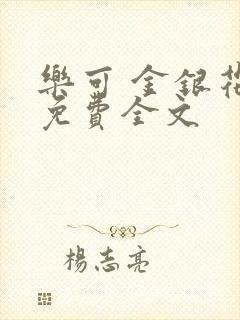 樂可 金銀花
免費全文
楊志亮